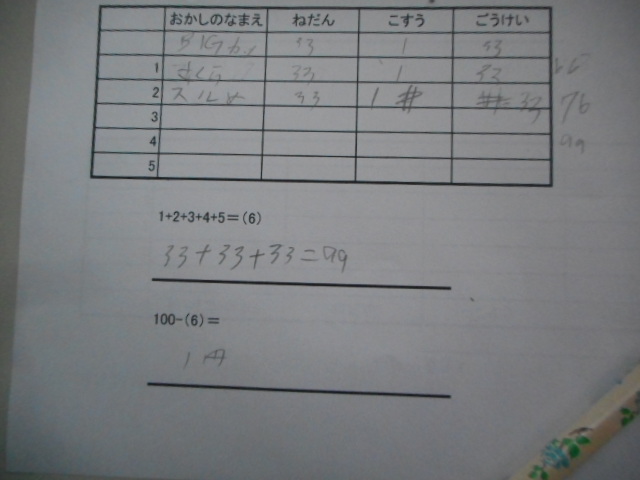 おかしのなまえ ねだん こすう ごうけい
BIGカツ 33 1 33
1 さくら 33 1 33
2 スルメ 33 1 33 76
3
4 99
5
1+2+3+4+5=(6)
33+33+33=99
100-(6)=
1円